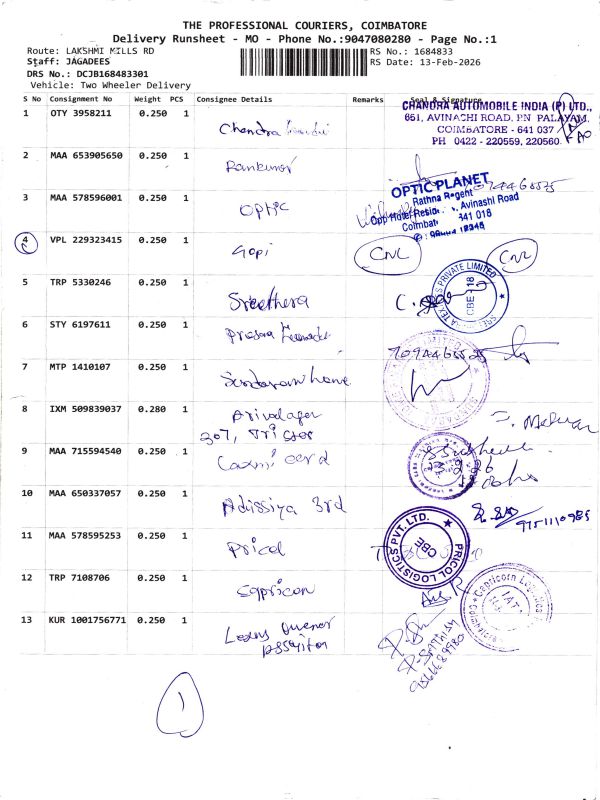 THE PROFESSIONAL COURIERS, COIMBATORE
Delivery Runsheet - MO - Phone No.:9047080280 - Page No.:1
Route: LAKSHMI MILLS RD
RS No.: 1684833
Staff: JAGADEES
RS Date: 13-Feb-2026
DRS No.: DCJB168483301
Vehicle: Two Wheeler Delivery
S No Consignment No Weight PCS Consignee Details Remarks Seal & Signature
CHANDRA AUTOMOBILE INDIA (P) LTD.,
651, AVINACHI ROAD, P.N. PALAYAM,
COIMBATORE - 641 037
PH 0422 - 220559, 220560
1 OTY 3958211 0.250 1 Chandra
2 MAA 653905650 0.250 1
OPTIC PLANET
Rathna Regent
Opp Hotel Residency, Avinashi Road
641 018
3 MAA 578596001 0.250 1 OPtic
4 VPL 229323415 0.250 1 Gopi CNL CNL
5 TRP 5330246 0.250 1 Sreethera
PRIVATE LIMITED
CBE - 18
6 STY 6197611 0.250 1
7094468525
7 MTP 1410107 0.250 1 Sundaram home
8 IXM 509839037 0.280 1
307, Tricher
9 MAA 715594540 0.250 1 Laxmi card
10 MAA 650337057 0.250 1 Adissiya 3rd
9751110985
11 MAA 578595253 0.250 1 Pricol
PRICOL LOGISTICS PVT. LTD.
CBE
12 TRP 7108706 0.250 1 Capricon
Capricorn Logistics
13 KUR 1001756771 0.250 1
9566689980
1